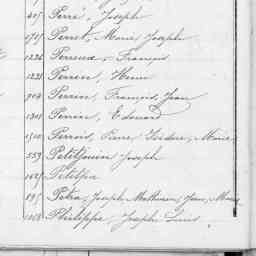 407 Perré, Joseph
1707 Perret, Marie Joseph
1226 Perreux, François
1221 Perrin, Henri
904 Perrin, François, Jean
1301 Perrin, Edouard
1500 Perrois, Pierre Isidore, Marie
559 Petitjouin Joseph
Petitpa
195 Petra, Joseph Mathurin, Jean, Marie
1068 Philippe, Joseph Louis